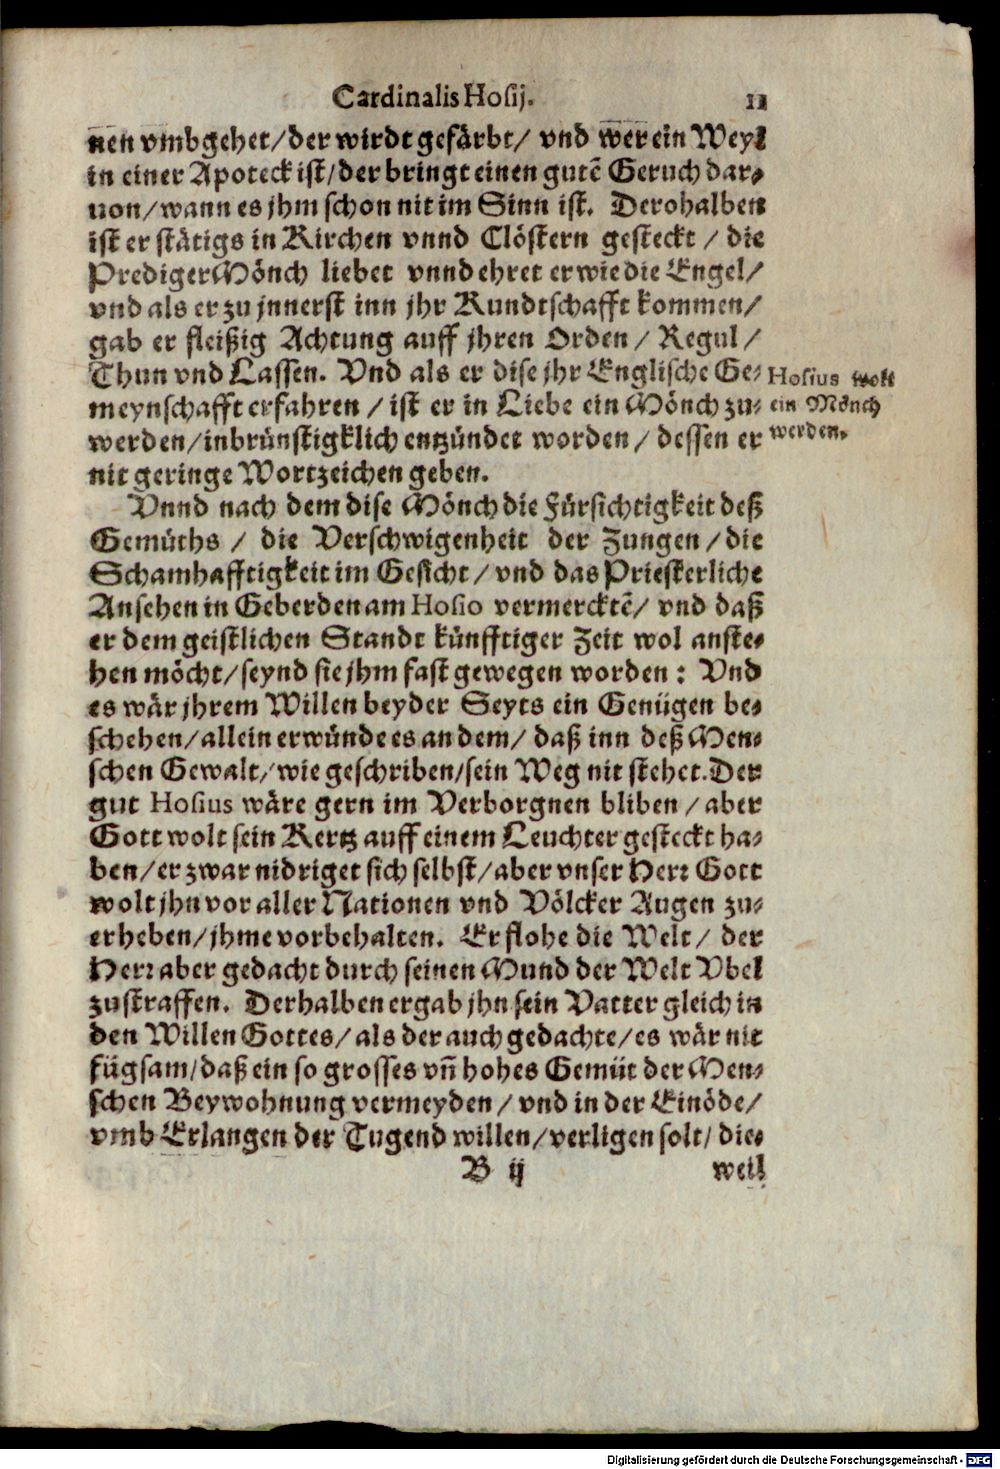 Cardinalis Hosij. 11
nen vmbgehet/ der wirdt gefärbt/ vnd wer ein Weyl
in einer Apoteck ist/ der bringt einen gutẽ Geruch dar-
uon/ wann es jhm schon nit im Sinn ist. Derohalben
ist er stätigs in Kirchen vnnd Clöstern gesteckt / die
PredigerMönch liebet vnnd ehret er wie die Engel/
vnd als er zu jnnerst inn jhr Kundtschafft kommen/
gab er fleißig Achtung auff jhren Orden / Regul /
Thun vnd Lassen. Vnd als er dise jhr Englische Ge-
meynschafft erfahren / ist er in Liebe ein Mönch zu-
werden/ inbrünstigklich entzündet worden / dessen er
nit geringe Wortzeichen geben.
Hosius wolt
ein Mönch
werden.
Vnnd nach dem dise Mönch die Fürsichtigkeit deß
Gemüths / die Verschwigenheit der Zungen / die
Schamhafftigkeit im Gesicht / vnd das Priesterliche
Ansehen in Geberden am Hosio vermercktẽ/ vnd daß
er dem geistlichen Standt künfftiger Zeit wol anste-
hen möcht/ seynd sie jhm fast gewegen worden: Vnd
es wär jhrem Willen beyder Seyts ein Genügen be-
schehen/ allein erwünde es an dem/ daß inn deß Men-
schen Gewalt/ wie geschriben/ sein Weg nit stehet. Der
gut Hosius wäre gern im Verborgnen bliben / aber
Gott wolt sein Kertz auff einem Leuchter gesteckt ha-
ben/ er zwar nidriget sich selbst/ aber vnser Herr Gott
wolt jhn vor aller Nationen vnd Völcker Augen zu-
erheben/ jhme vorbehalten. Er flohe die Welt/ der
Herr aber gedacht durch seinen Mund der Welt Vbel
zustraffen. Derhalben ergab jhn sein Vatter gleich in
den Willen Gottes/ als der auch gedachte/ es wär nit
fügsam/ daß ein so grosses vñ hohes Gemüt der Men-
schen Beywohnung vermeyden / vnd in der Einöde/
vmb Erlangen der Tugend willen/ verligen solt/ die-
B ij weil
Digitalisierung gefördert durch die Deutsche Forschungsgemeinschaft - DFG